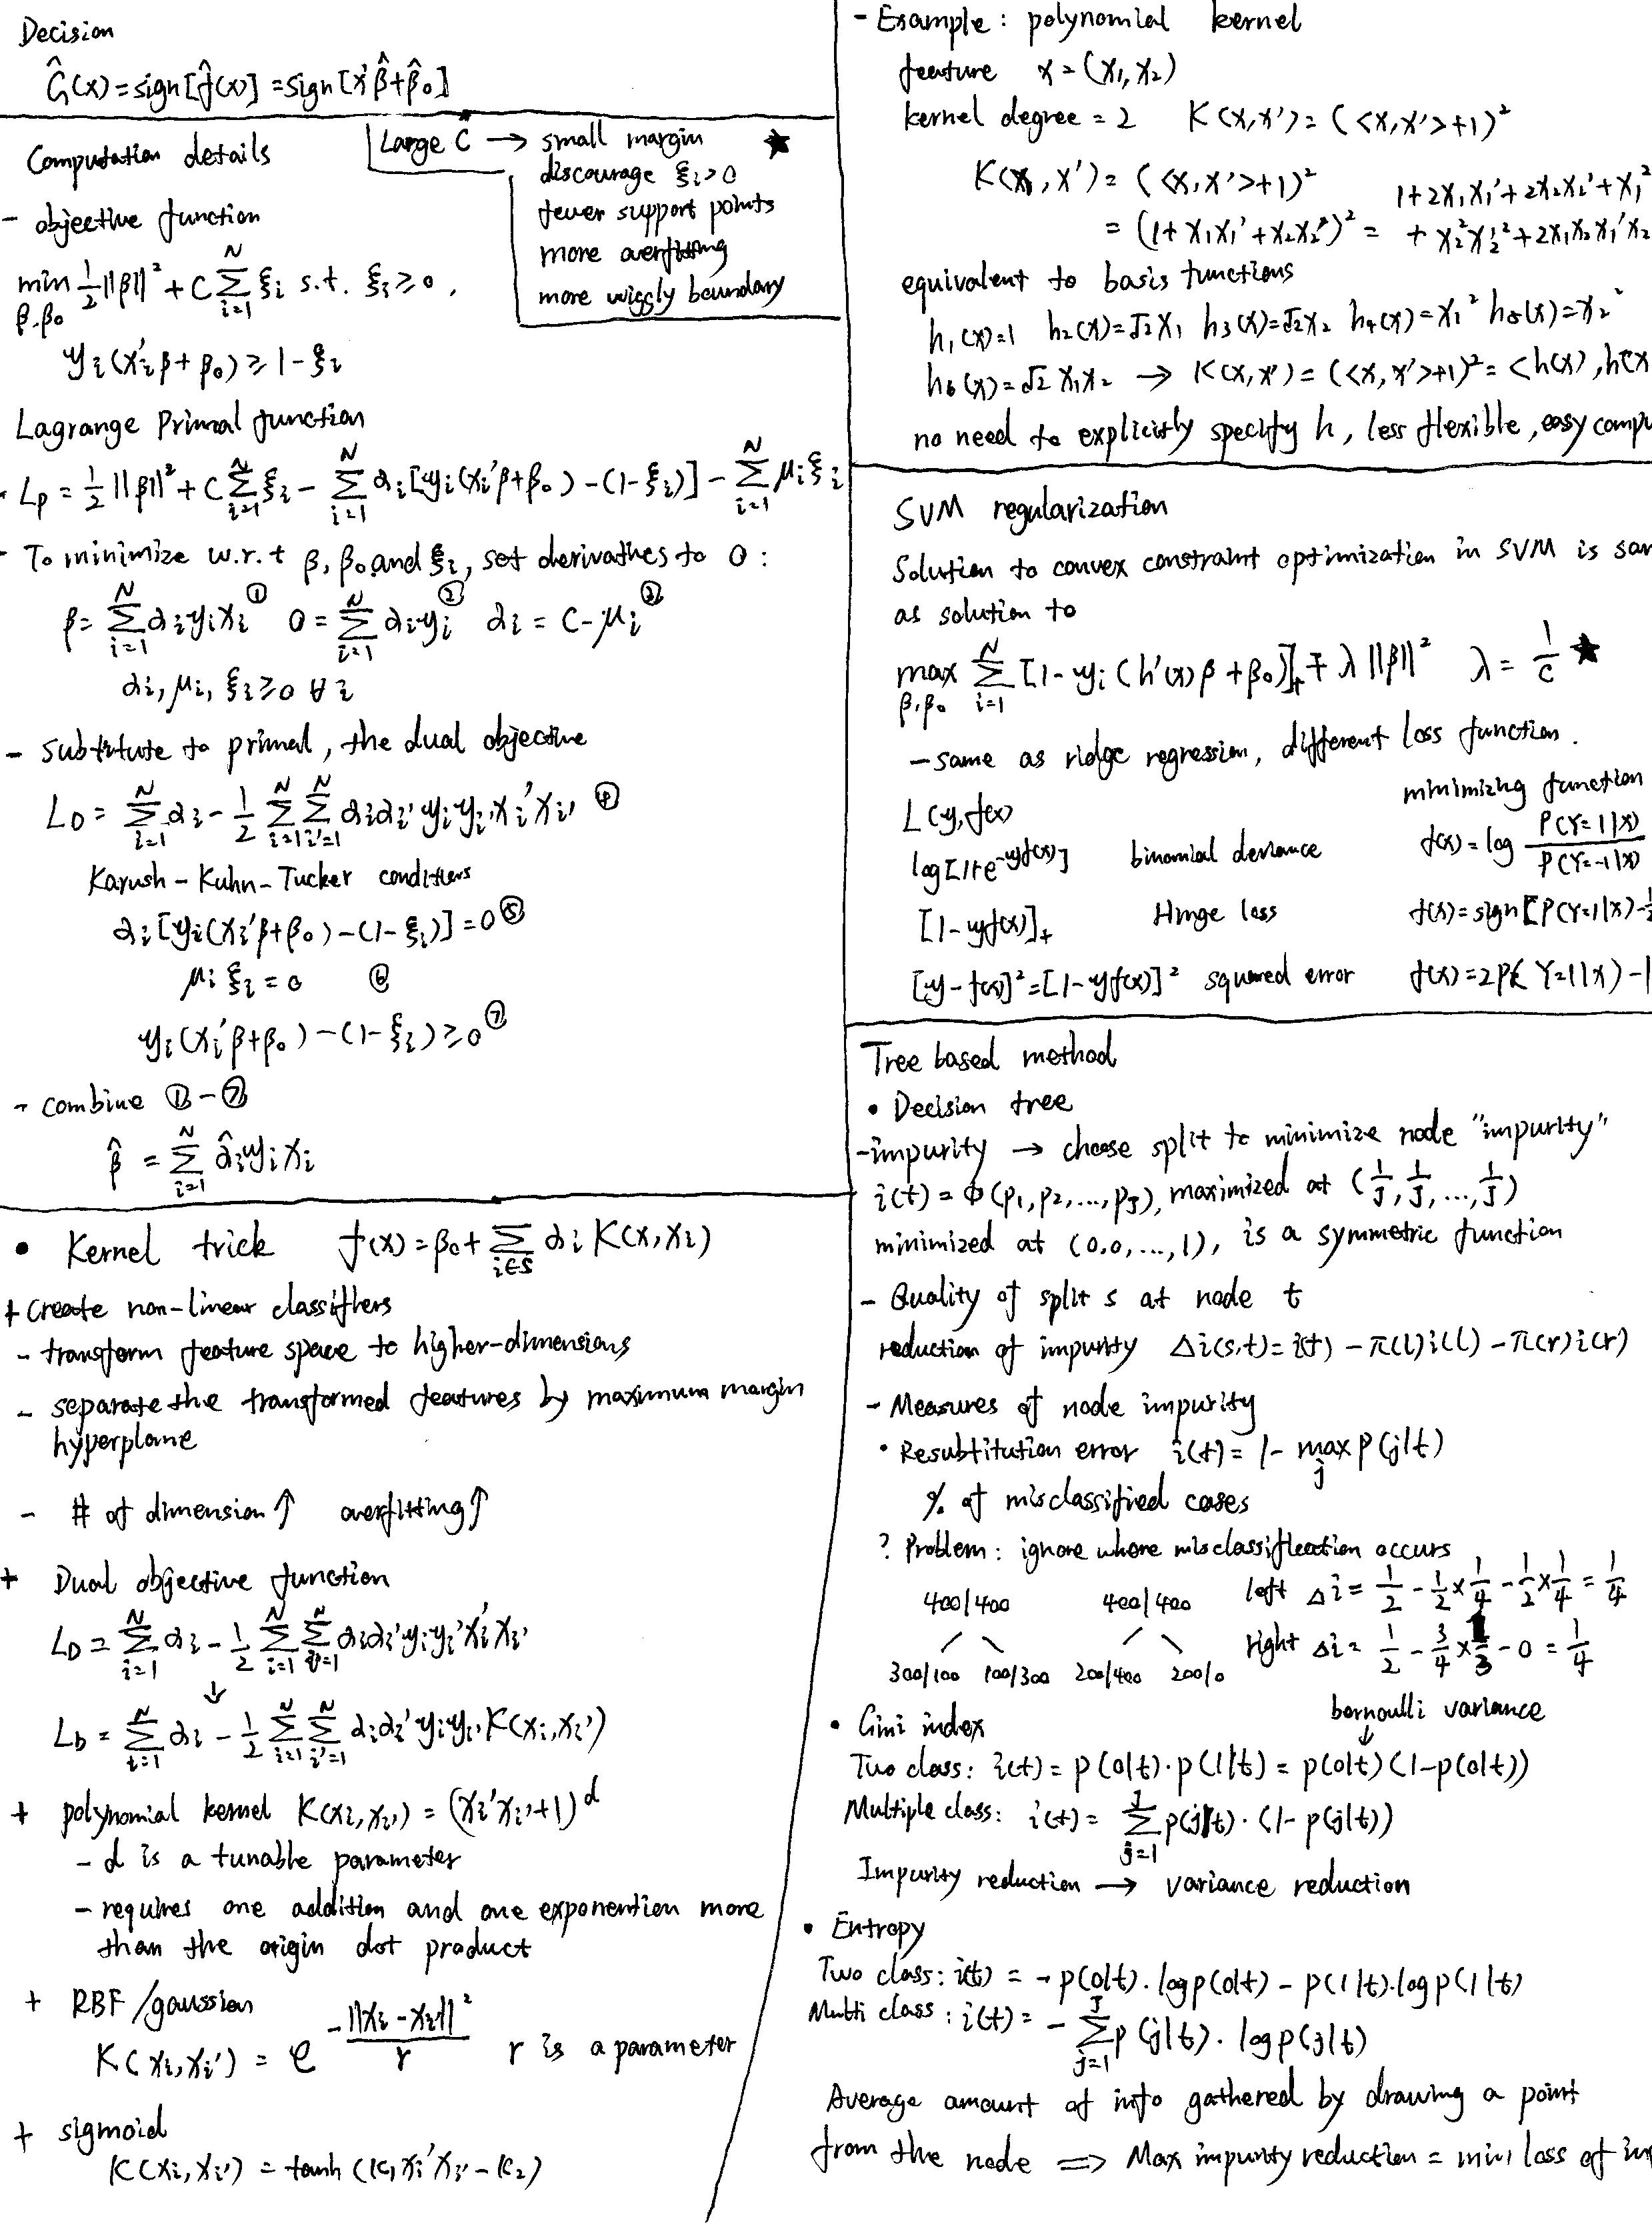 Decision
Ĝ(x)=sign[f̂(x)]=sign[x'β̂+β̂₀]
Computation details
Large C → small margin ★
discourage ξi>0
fewer support points
more overfitting
more wiggly boundary
- objective function
min β,β₀ 1/2||β||² + C Σ_{i=1}^N ξi s.t. ξi≥0,
yi(xi'β+β₀)≥1-ξi
Lagrange Primal function
- Lp = 1/2||β||² + C Σ_{i=1}^N ξi - Σ_{i=1}^N αi[yi(xi'β+β₀)-(1-ξi)] - Σ_{i=1}^N μiξi
- To minimize w.r.t β, β₀ and ξi, set derivatives to 0:
β= Σ_{i=1}^N αiyixi ① 0= Σ_{i=1}^N αiyi ② αi = C-μi ③
αi, μi, ξi≥0 ∀i
- Substitute to primal, the dual objective
LD= Σ_{i=1}^N αi - 1/2 Σ_{i=1}^N Σ_{i'=1}^N αiαi'yiyi'xi'xi' ④
Karush-Kuhn-Tucker conditions
αi[yi(xi'β+β₀)-(1-ξi)]=0 ⑤
μiξi=0 ⑥
yi(xi'β+β₀)-(1-ξi)≥0 ⑦
- combine ①-⑦
β̂ = Σ_{i=1}^N α̂iyixi
• Kernel trick f(x)=β₀+ Σ_{i∈S} αi K(x,xi)
+ Create non-linear classifiers
- transform feature space to higher-dimensions
- separate the transformed features by maximum margin
hyperplane
- # of dimension↑ overfitting↑
+ Dual objective function
LD = Σ_{i=1}^N αi - 1/2 Σ_{i=1}^N Σ_{i'=1}^N αiαi'yiyi'xi'xi'
↓
LD = Σ_{i=1}^N αi - 1/2 Σ_{i=1}^N Σ_{i'=1}^N αiαi'yiyi'K(xi,xi')
+ polynomial kernel K(xi,xi')=(xi'xi'+1)^d
- d is a tunable parameter
- requires one addition and one exponention more
than the origin dot product
+ RBF/gaussian
K(xi,xi') = e^{-||xi-xi'||²/r} r is a parameter
+ sigmoid
K(xi,xi') = tanh(k₁xi'xi'-k₂)
- Example: polynomial kernel
feature x=(x₁,x₂)
kernel degree = 2 K(x,x')=(<x,x'>+1)²
K(x,x')=(<x,x'>+1)² 1+2x₁x₁'+2x₂x₂'+x₁²
=(1+x₁x₁'+x₂x₂')² = +x₂²x₂'²+2x₁x₂x₁'x₂
equivalent to basis functions
h₁(x)=1 h₂(x)=√2x₁ h₃(x)=√2x₂ h₄(x)=x₁² h₅(x)=x₂²
h₆(x)=√2x₁x₂ → K(x,x')=(<x,x'>+1)²=<h(x),h(x
no need to explicitly specify h, less flexible, easy compu
SVM regularization
Solution to convex constraint optimization in SVM is sam
as solution to
max β,β₀ Σ_{i=1}^N [1-yi(h'(x)β+β₀)]₊ + λ||β||² λ = 1/C ★
- same as ridge regression, different loss function.
L(y,f(x)) minimizing function
log[1+e^{-yf(x)}] binomial deviance f(x)=log P(Y=1|x)/P(Y=-1|x)
[1-yf(x)]₊ Hinge loss f(x)=sign[P(Y=1|x)-½
[y-f(x)]²=[1-yf(x)]² squared error f(x)=2P(Y=1|x)-1
Tree based method
• Decision tree
-impurity → choose split to minimize node "impurity"
i(t)=Φ(p₁,p₂,...,pJ), maximized at (1/J,1/J,...,1/J)
minimized at (0,0,...,1), is a symmetric function
- Quality of split s at node t
reduction of impurity Δi(s,t)=i(t)-π(l)i(l)-π(r)i(r)
- Measures of node impurity
• Resubtitution error i(t)=1-max_j p(j|t)
% of misclassified cases
? Problem: ignore where misclassification occurs
400/400 400/400 left Δi= 1/2-1/2×1/4-1/2×1/4=1/4
300/100 100/300 200/400 200/0 right Δi= 1/2-3/4×1/3-0=1/4
• Gini index bernoulli variance
↓
Two class: i(t)=p(0|t)·p(1|t)=p(0|t)(1-p(0|t))
Multiple class: i(t)= Σ_{j=1}^J p(j|t)·(1-p(j|t))
Impurity reduction → variance reduction
• Entropy
Two class: i(t) = -p(0|t)·logp(0|t)-p(1|t)·logp(1|t)
Multi class: i(t)= - Σ_{j=1}^J p(j|t)·logp(j|t)
Average amount of info gathered by drawing a point
from the node ⇒ Max impurity reduction = mini loss of in